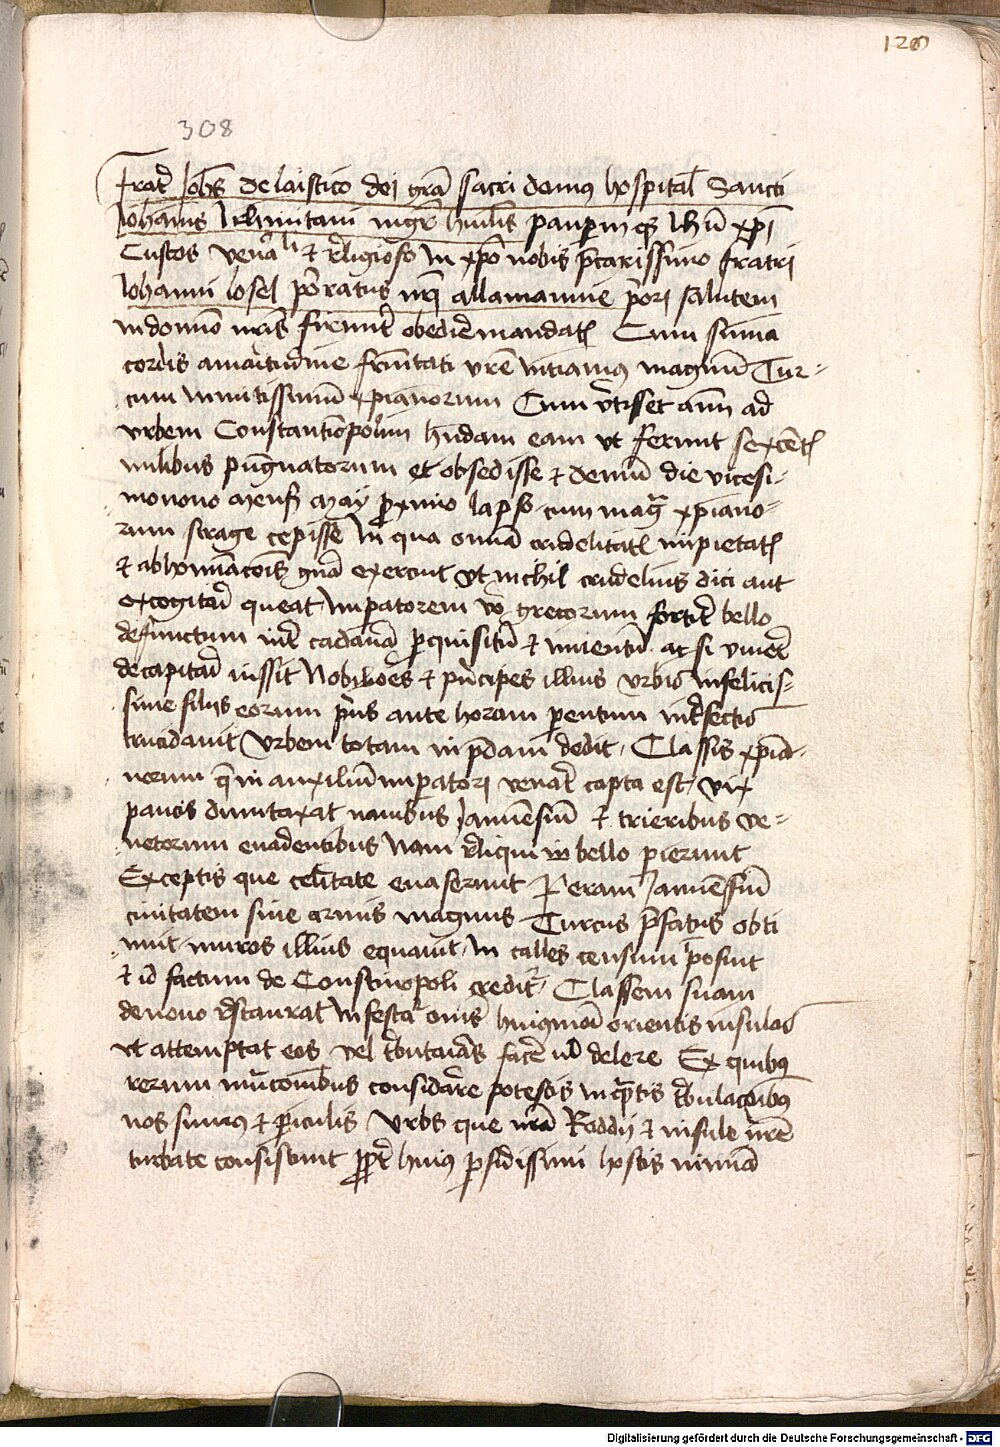 120
308
Frater Johes de laistico dei gra sacri domus hospital Sancti
Johanis Jerlimitani mgr humilis pauperumqz Jhu xpi
Custos venerabli et religioso in xpo nobis pcarissimo fratri
Johanni losel prioratus nri allamannie priori salutem
in domino nris firmiter obedire mandatis Cum summa
cordis amaritudine frnitati vre nuntiamus magnum Tur-
cum inimicissimum xpianorum Cum venisset ad
vrbem Constantinopolim habundam eam vt ferunt sexcentis
milibus pugnatorum et obsedisse et demum die vicesi-
monono mensis may proximo lapso cum magna xpiano-
rum strage cepisse In qua omnia crudelitatis impietatis
et abhominacois gna exercuit vt nichil crudelius dici aut
excogitari queat Imperatorem vero grecorum fortiter bello
defunctum inter cadauera perquisitum et inuentum ac si viueret
decapitari iussit Nobiliores et principes illius vrbis infelicis-
sime filiis eorum prius ante horam parentum interfectis
trucidauit Vrbem totam in predam dedit Classis xpia-
norum que in auxilium imperatori venerat capta est vix
paucis dumtaxat nauibus Januensium et trieribus ve-
netorum euadentibus Nam reliqui in bello perierunt
Exceptis que celeritate euaserunt Peram Januensium
ciuitatem sine armis magnus Turcus prefatus obti
nuit muros illius equauit In calles censum posuit
et id factum de Constinopoli creditur Classem suam
denuo restaurat Infestatur omnis huiusmodi orientis insulas
vt attemptat eos vel tributarias facere vel delere Ex quibus
rerum mutacoibus considerare potestis in quantis tribulacoibus
nos sumus et periculis Vrbs que nra Roddij et insule nre
turbate consistunt propter huius perfidissimi hostis nimia
Digitalisierung gefördert durch die Deutsche Forschungsgemeinschaft - DFG